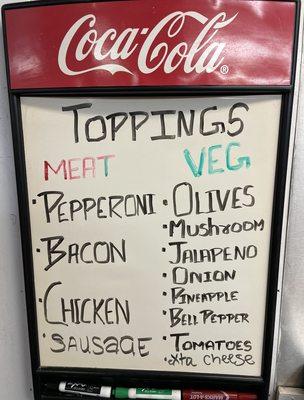 Coca-Cola
TOPPINGS
MEAT
VEG
· PEPPERONI
· BACON
· CHICKEN
· SAUSAGE
· OLIVES
· MUSHROOM
· JALAPENO
· ONION
· PINEAPPLE
· BELL PEPPER
· TOMATOES
· xta cheese